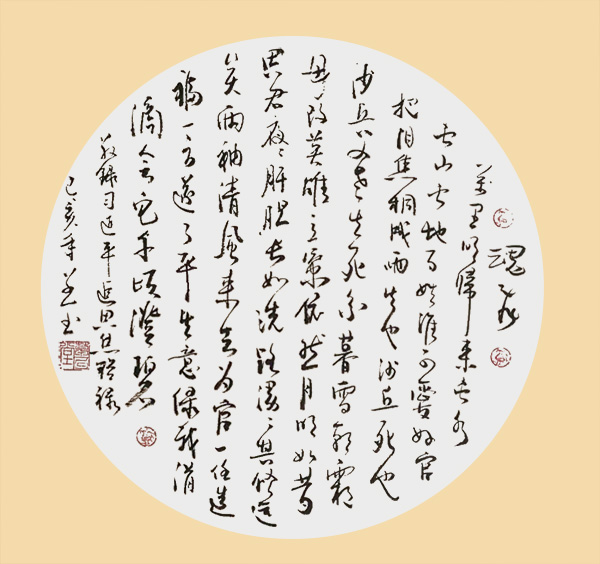 魂飞
萬里盼歸来此水
此山此地百姓谁不愛好官
把泪焦桐成雨生也沙丘死也
沙丘父老生死系暮雪朝霜
毋改英雄意氣依然月明如昔
思君夜夜肝胆长如洗路漫漫其修遠
矣兩袖清風来去为官一任造
福一方遂了平生意绿我涓
滴会它千顷澄碧
敬録习近平追思焦裕禄
己亥年 书